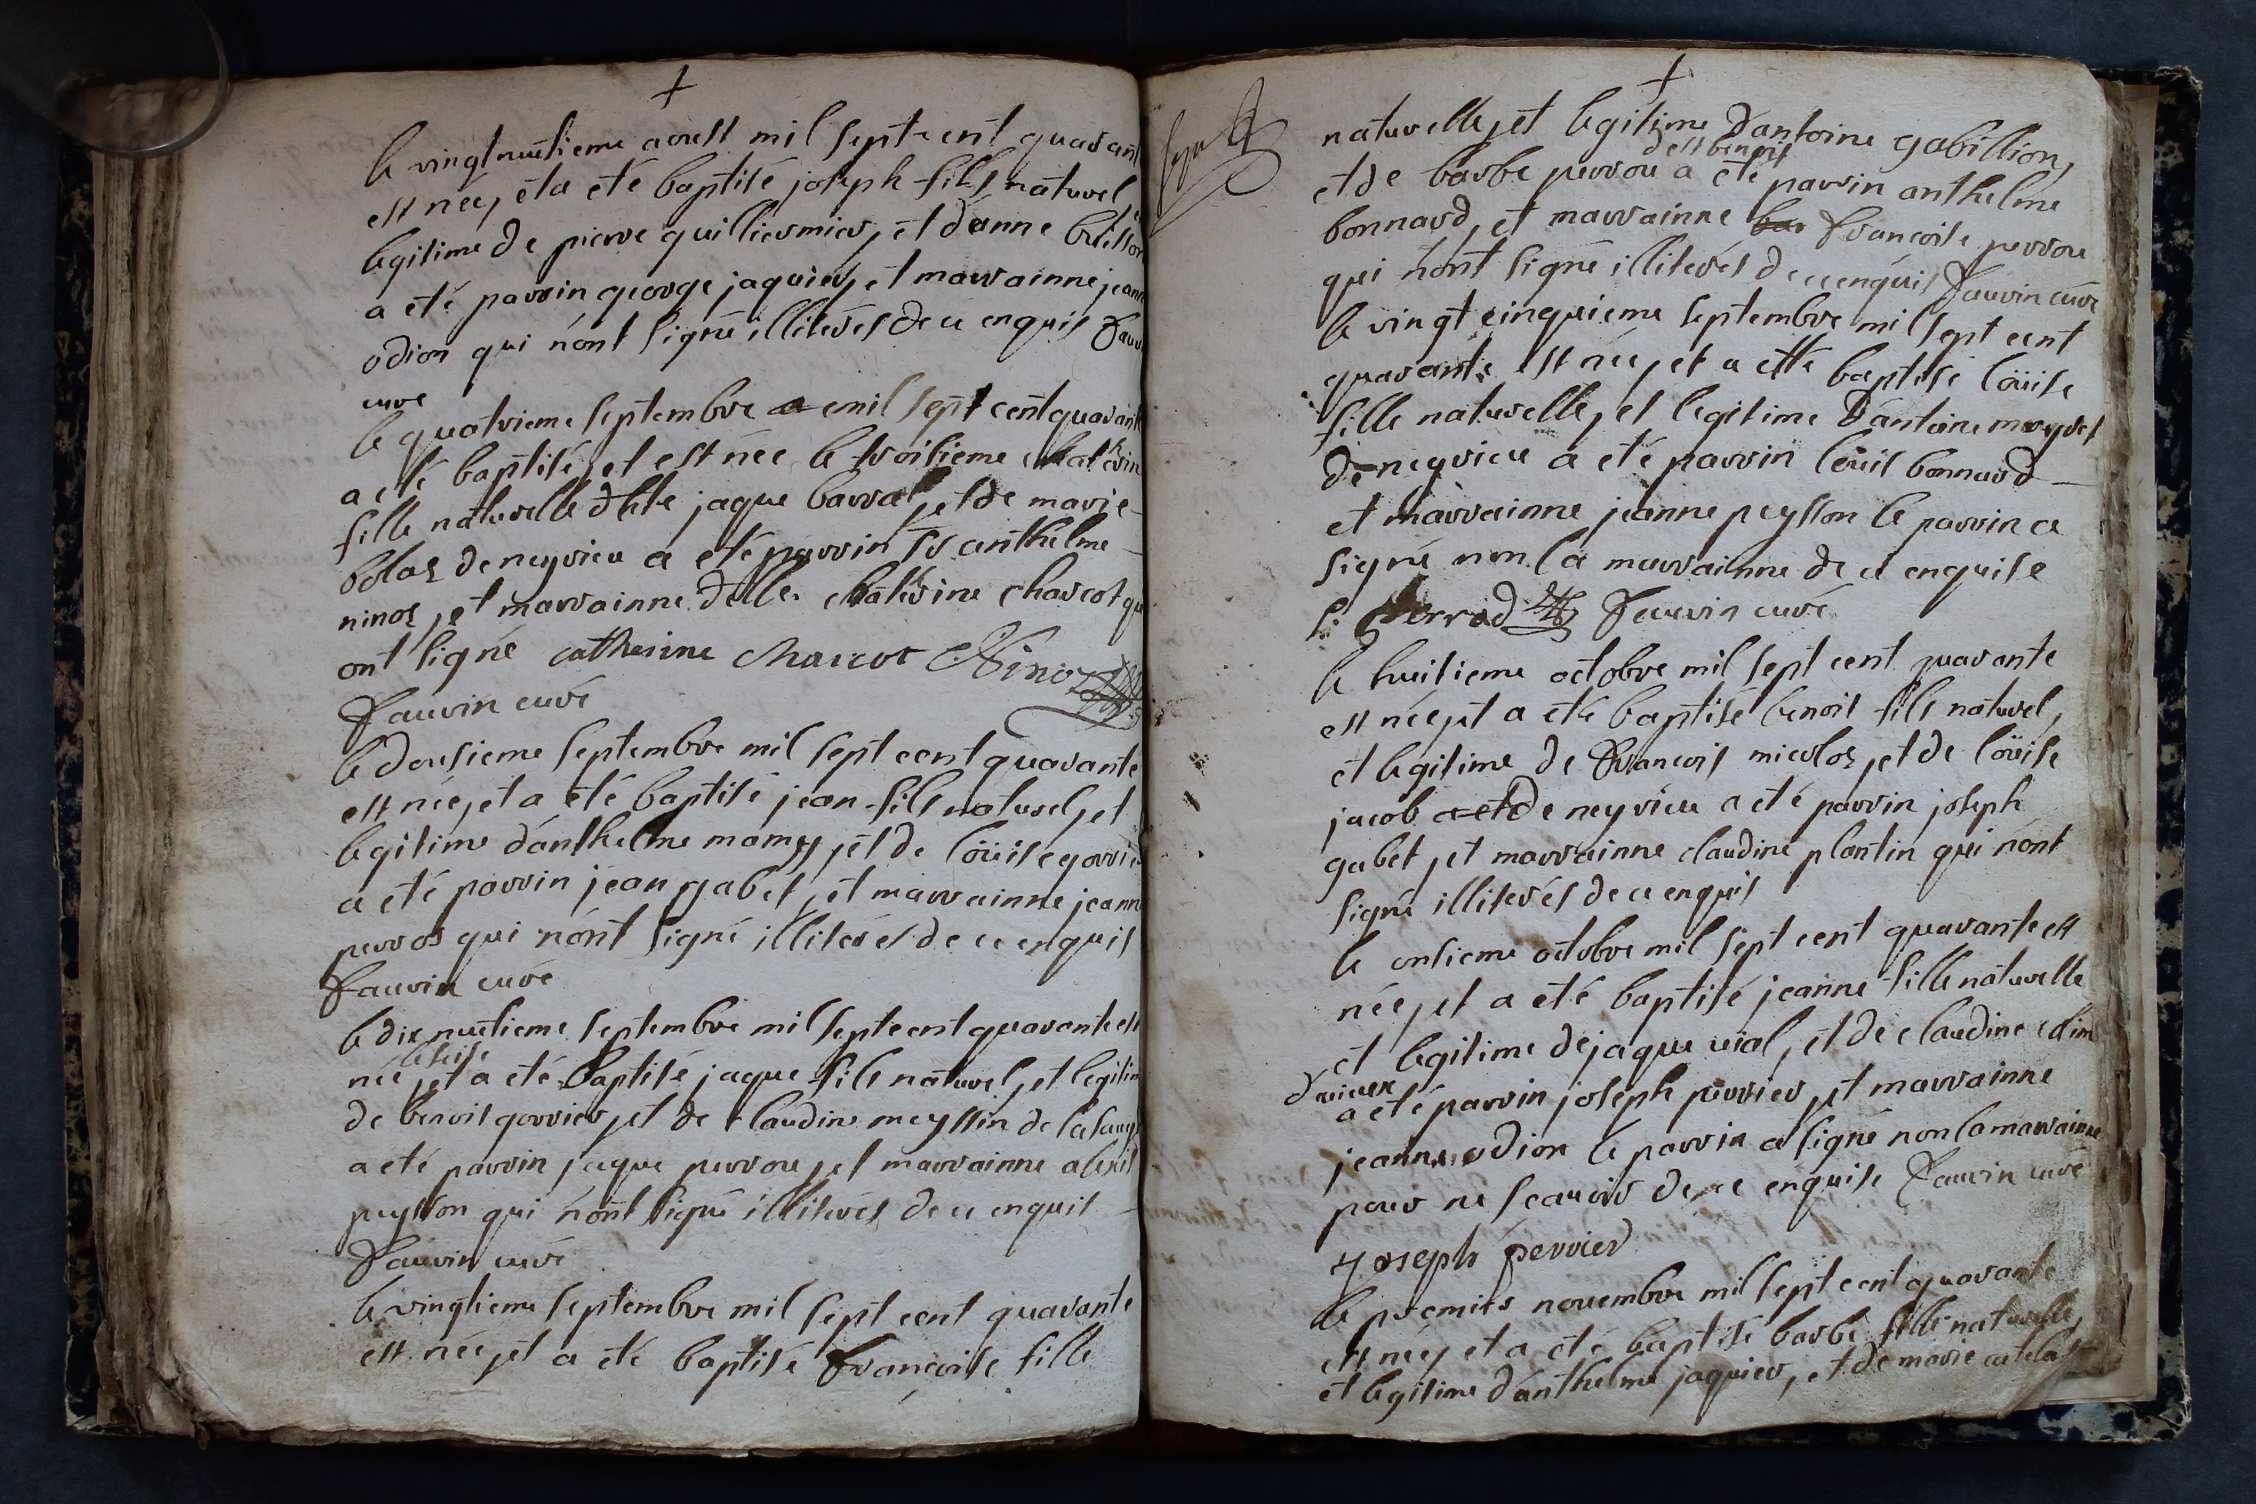 le vingt nuitieme aoust mil sept cent quarant
est née, et a eté baptisé joseph fils naturel, e
legitime de pierre guilliermier, et d'anne buisson
a eté parrin george jaquier, et marrainne jeann
odion qui nónt signé illiterés de ce enquis fauvi
curé
le quatrieme septembre mil sept cent quarant
a eté baptisé, et est née le troisieme chaterin
fille naturelle d jaque barral, et de marie
bolaz de neyrieu a eté parrin sr anthelme
ninoz, et marrainne delle chaterine charcot qu
ont signé catherine charcot Ninoz
fauvin curé
le dousieme septembre mil sept cent quarante
est née, et a eté baptisé jean fils naturel, et
legitime d'anthelme mamy, et de loüise gorrie
a eté parrin jean gabet, et marrainne jeanne
perroz qui nónt signé illiterés de ce enquis
fauvin curé
le dix nuitieme septembre mil sept cent quarante est
le seise
née, et a eté baptisé jaque fils naturel, et legitim
de benoit gorrier, et de claudine meyssin de
a eté parrin jaque perrou, et marrainne alexis
peysson qui nónt signé illiterés de ce enquis
fauvin curé
le vingtieme septembre mil sept cent quarante
est née, et a eté baptisé françoise fille
naturelle, et legitime d'antoine gabillion,
de st benoit
et de barbe perrou a eté parrin anthelme
bonnard, et marrainne françoise perrou
qui nónt signé illiterés de ce enquis fauvin curé
le vingt cinquieme septembre mil sept cent
quarante est née, et a etté baptisé loüise
fille naturelle, et legitime d'antoine
de neyrieu a eté parrin loüis bonnard
et marrainne jeanne peysson le parrin a
signé non la marrainne de ce enquise
fauvin curé
le huitieme octobre mil sept cent quarante
est née, et a eté baptisé benoit fils naturel,
et legitime de françois micoloz, et de loüise
jacob de neyrieu a eté parrin joseph
gabet, et marrainne claudine plantin qui nónt
signé illiterés de ce enquis
le onsieme octobre mil sept cent quarante est
née, et a eté baptisé jeanne fille naturelle
et legitime de jaque vial, et de claudine
a eté parrin joseph perrier, et marrainne
jeanne odion le parrin a signé non la marrainne
pour ne scavoir de ce enquise fauvin curé
Joseph perrier
le premier novembre mil sept cent quarante
est née, et a eté baptisé barbe fille naturelle,
et legitime d'anthelme jaquier, et de marie catelas